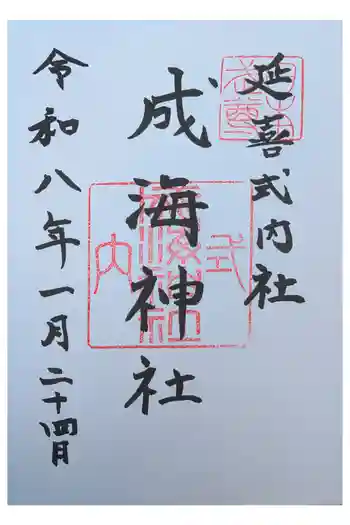 延喜式内社
成海神社
令和八年一月二十四日
式内